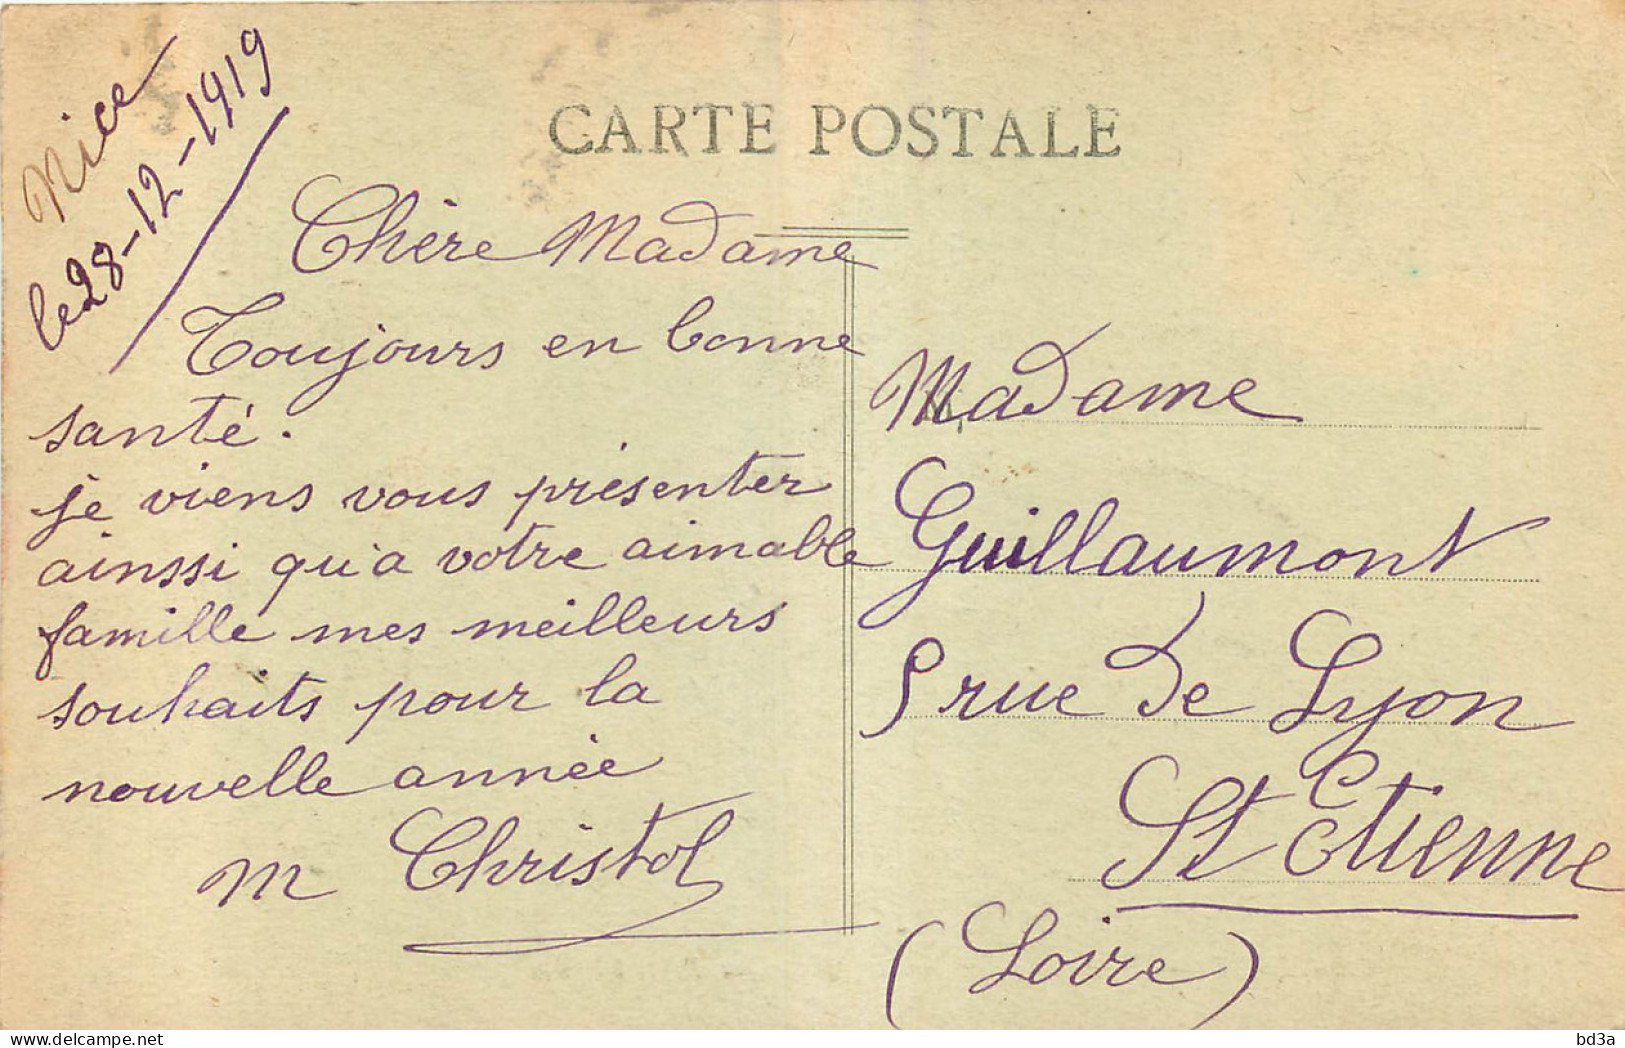 Nice
le 28-12-1919
CARTE POSTALE
Chère Madame
Toujours en bonne
santé.
je viens vous présenter
ainsi qu'a votre aimable
famille mes meilleurs
souhaits pour la
nouvelle année
M Christol
Madame
Guillaumont
5 rue de Lyon
St Etienne
(Loire)
bd3a